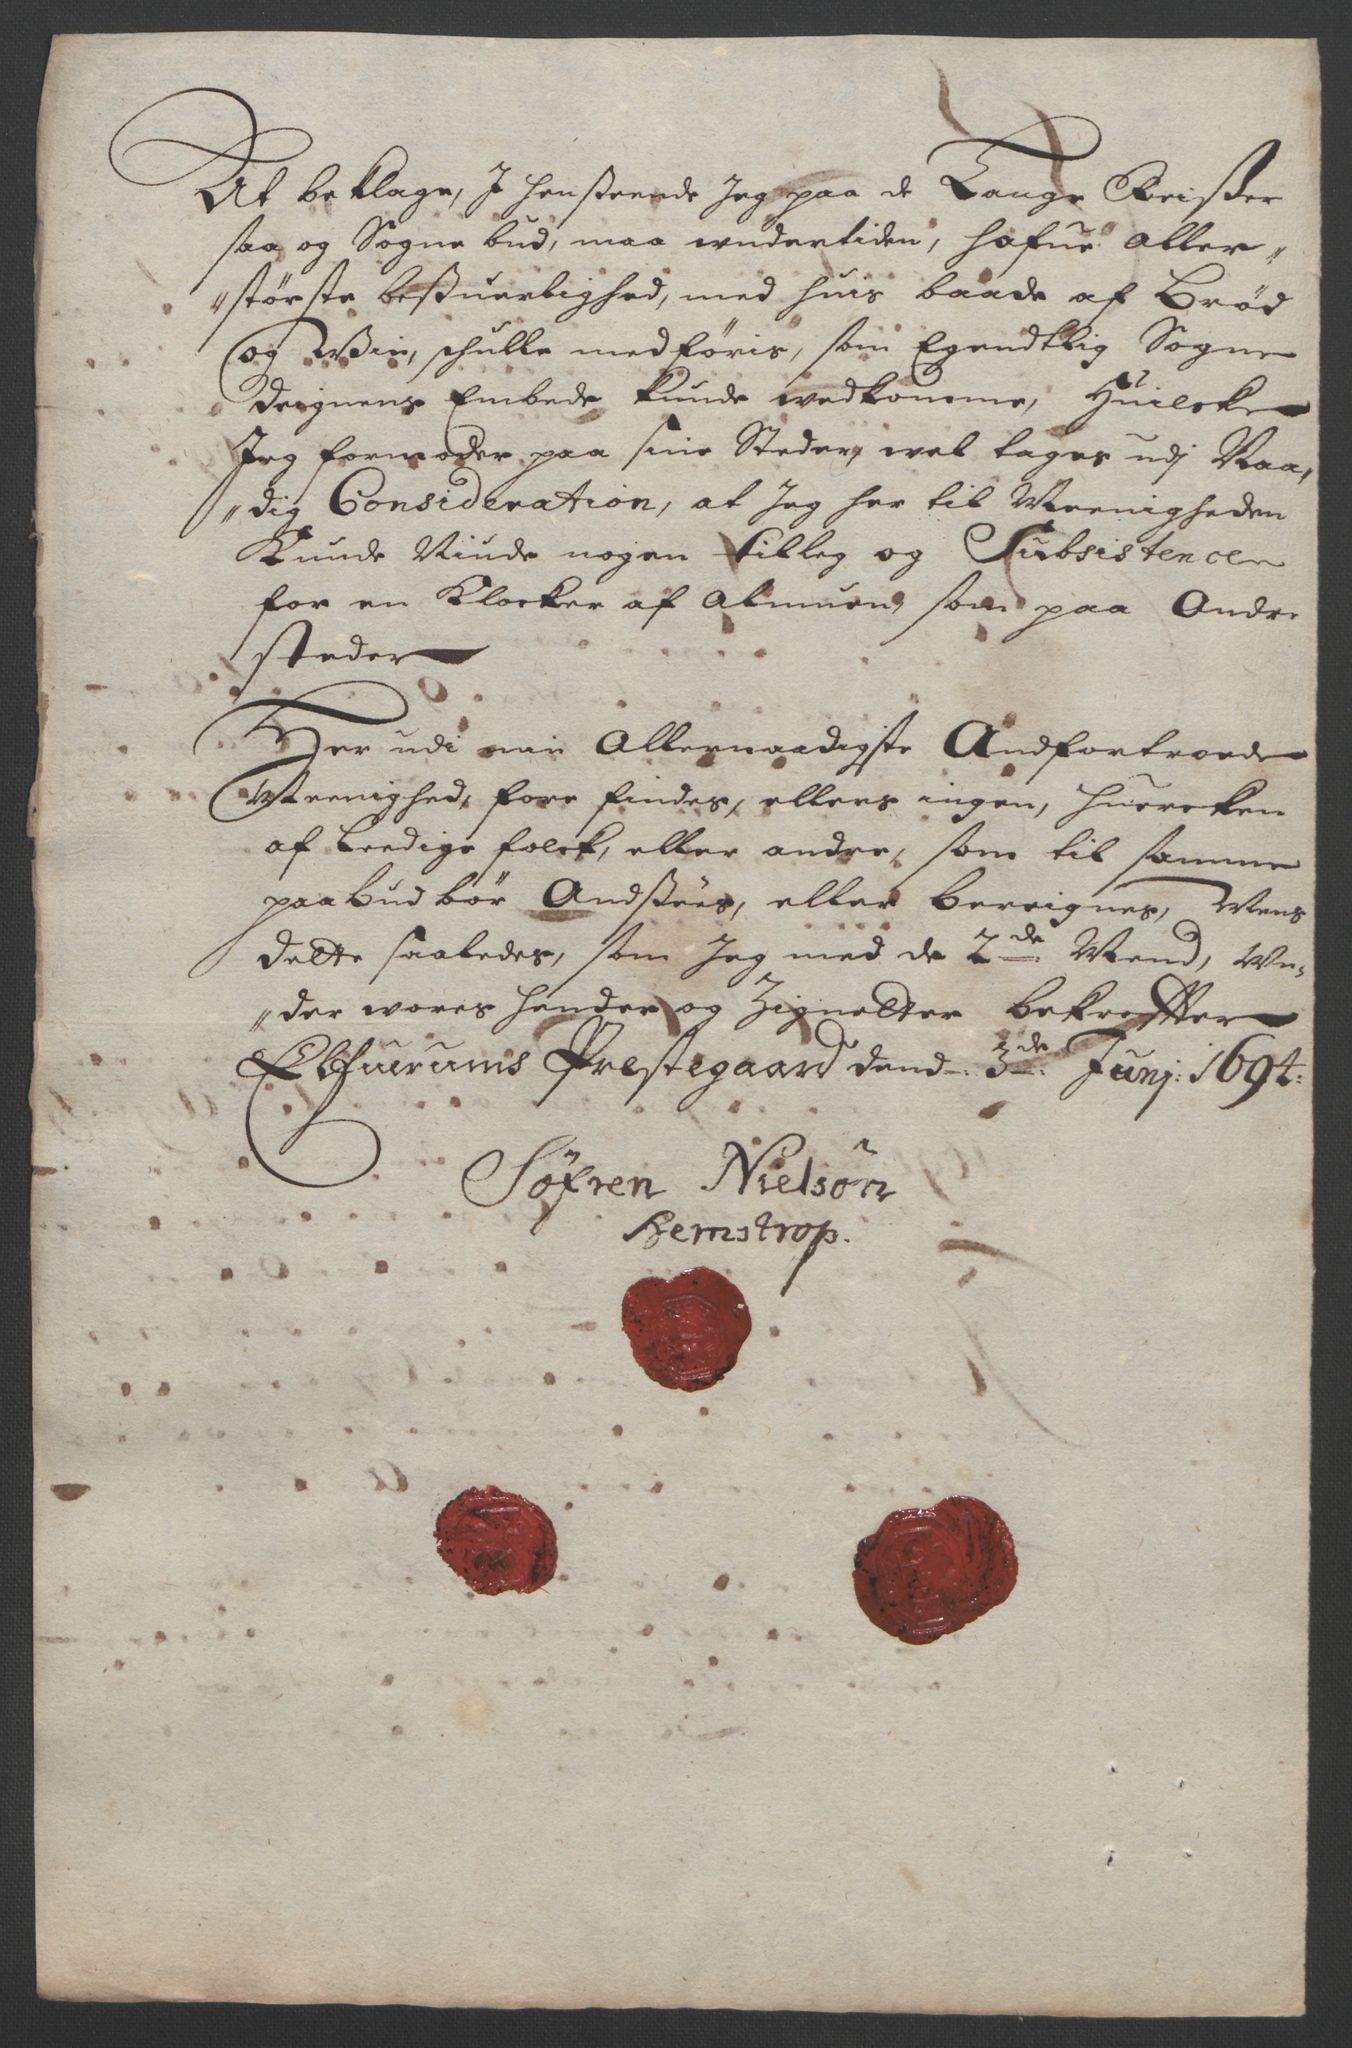 At beklage, J henseende Jeg paa de Lange Reiser
saa og Sogne bud, maa wndertiden, hafue Aller„
„største besuerlighed, med huis baade af Brød
og Wiin, schulle medføris, som Egendtlig Sogne
deignens Embede kunde wedkomme, Huilcke
Jeg formoder paa sine Steder, wel tages udj Naa„
„dig Consideration, at Jeg her til Meenigheden
Kunde Niude nogen tilleg og Subsistence
for en Klocker af Almuen, som paa Andre
steder
Her udi min Allernaadigste Andfortroede
Meenighed, fore findes, ellers ingen, huercken
af Leedige folck, eller andre, som til samme
paabud bør Andsees, eller bereignes, Mens
dette saaledes, som Jeg med de 2de Mend, Wn„
„der wores hender og Zignetter bekrefter
Elfuerums Prestegaard dend 3de Junj: 1694:
Søfren Nielsøn
Hemstrop.